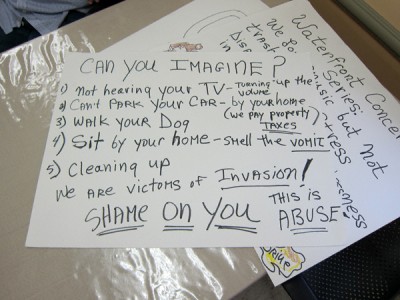 CAN YOU IMAGINE?
1) Not hearing your TV - turning up the volume
2) Can't PARK YOUR CAR - by your home
(we pay property TAXES
3) WALK YOUR Dog
4) Sit by your home - smell the VOMIT
5) Cleaning up
WE ARE VICTOMS OF INVASION!
SHAME ON YOU THIS IS ABUSE!
Waterfront Concert
Series:
We Love
music but not
trash
in